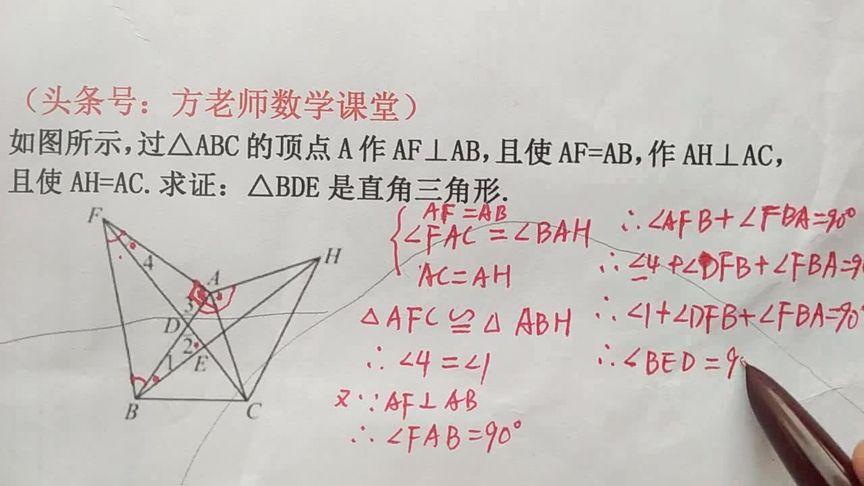 （头条号：方老师数学课堂）
如图所示，过△ABC 的顶点 A 作 AF⊥AB，且使 AF=AB，作 AH⊥AC，
且使 AH=AC. 求证：△BDE 是直角三角形.
F
4
A
H
3
D
2
1
E
B
C
AF=AB
∠FAC=∠BAH
AC=AH
△AFC≌△ABH
∴∠4=∠1
又∵AF⊥AB
∴∠FAB=90°
∴∠AFB+∠FBA=90°
∴∠4+∠DFB+∠FBA=9
∴∠1+∠DFB+∠FBA=90°
∴∠BED=9